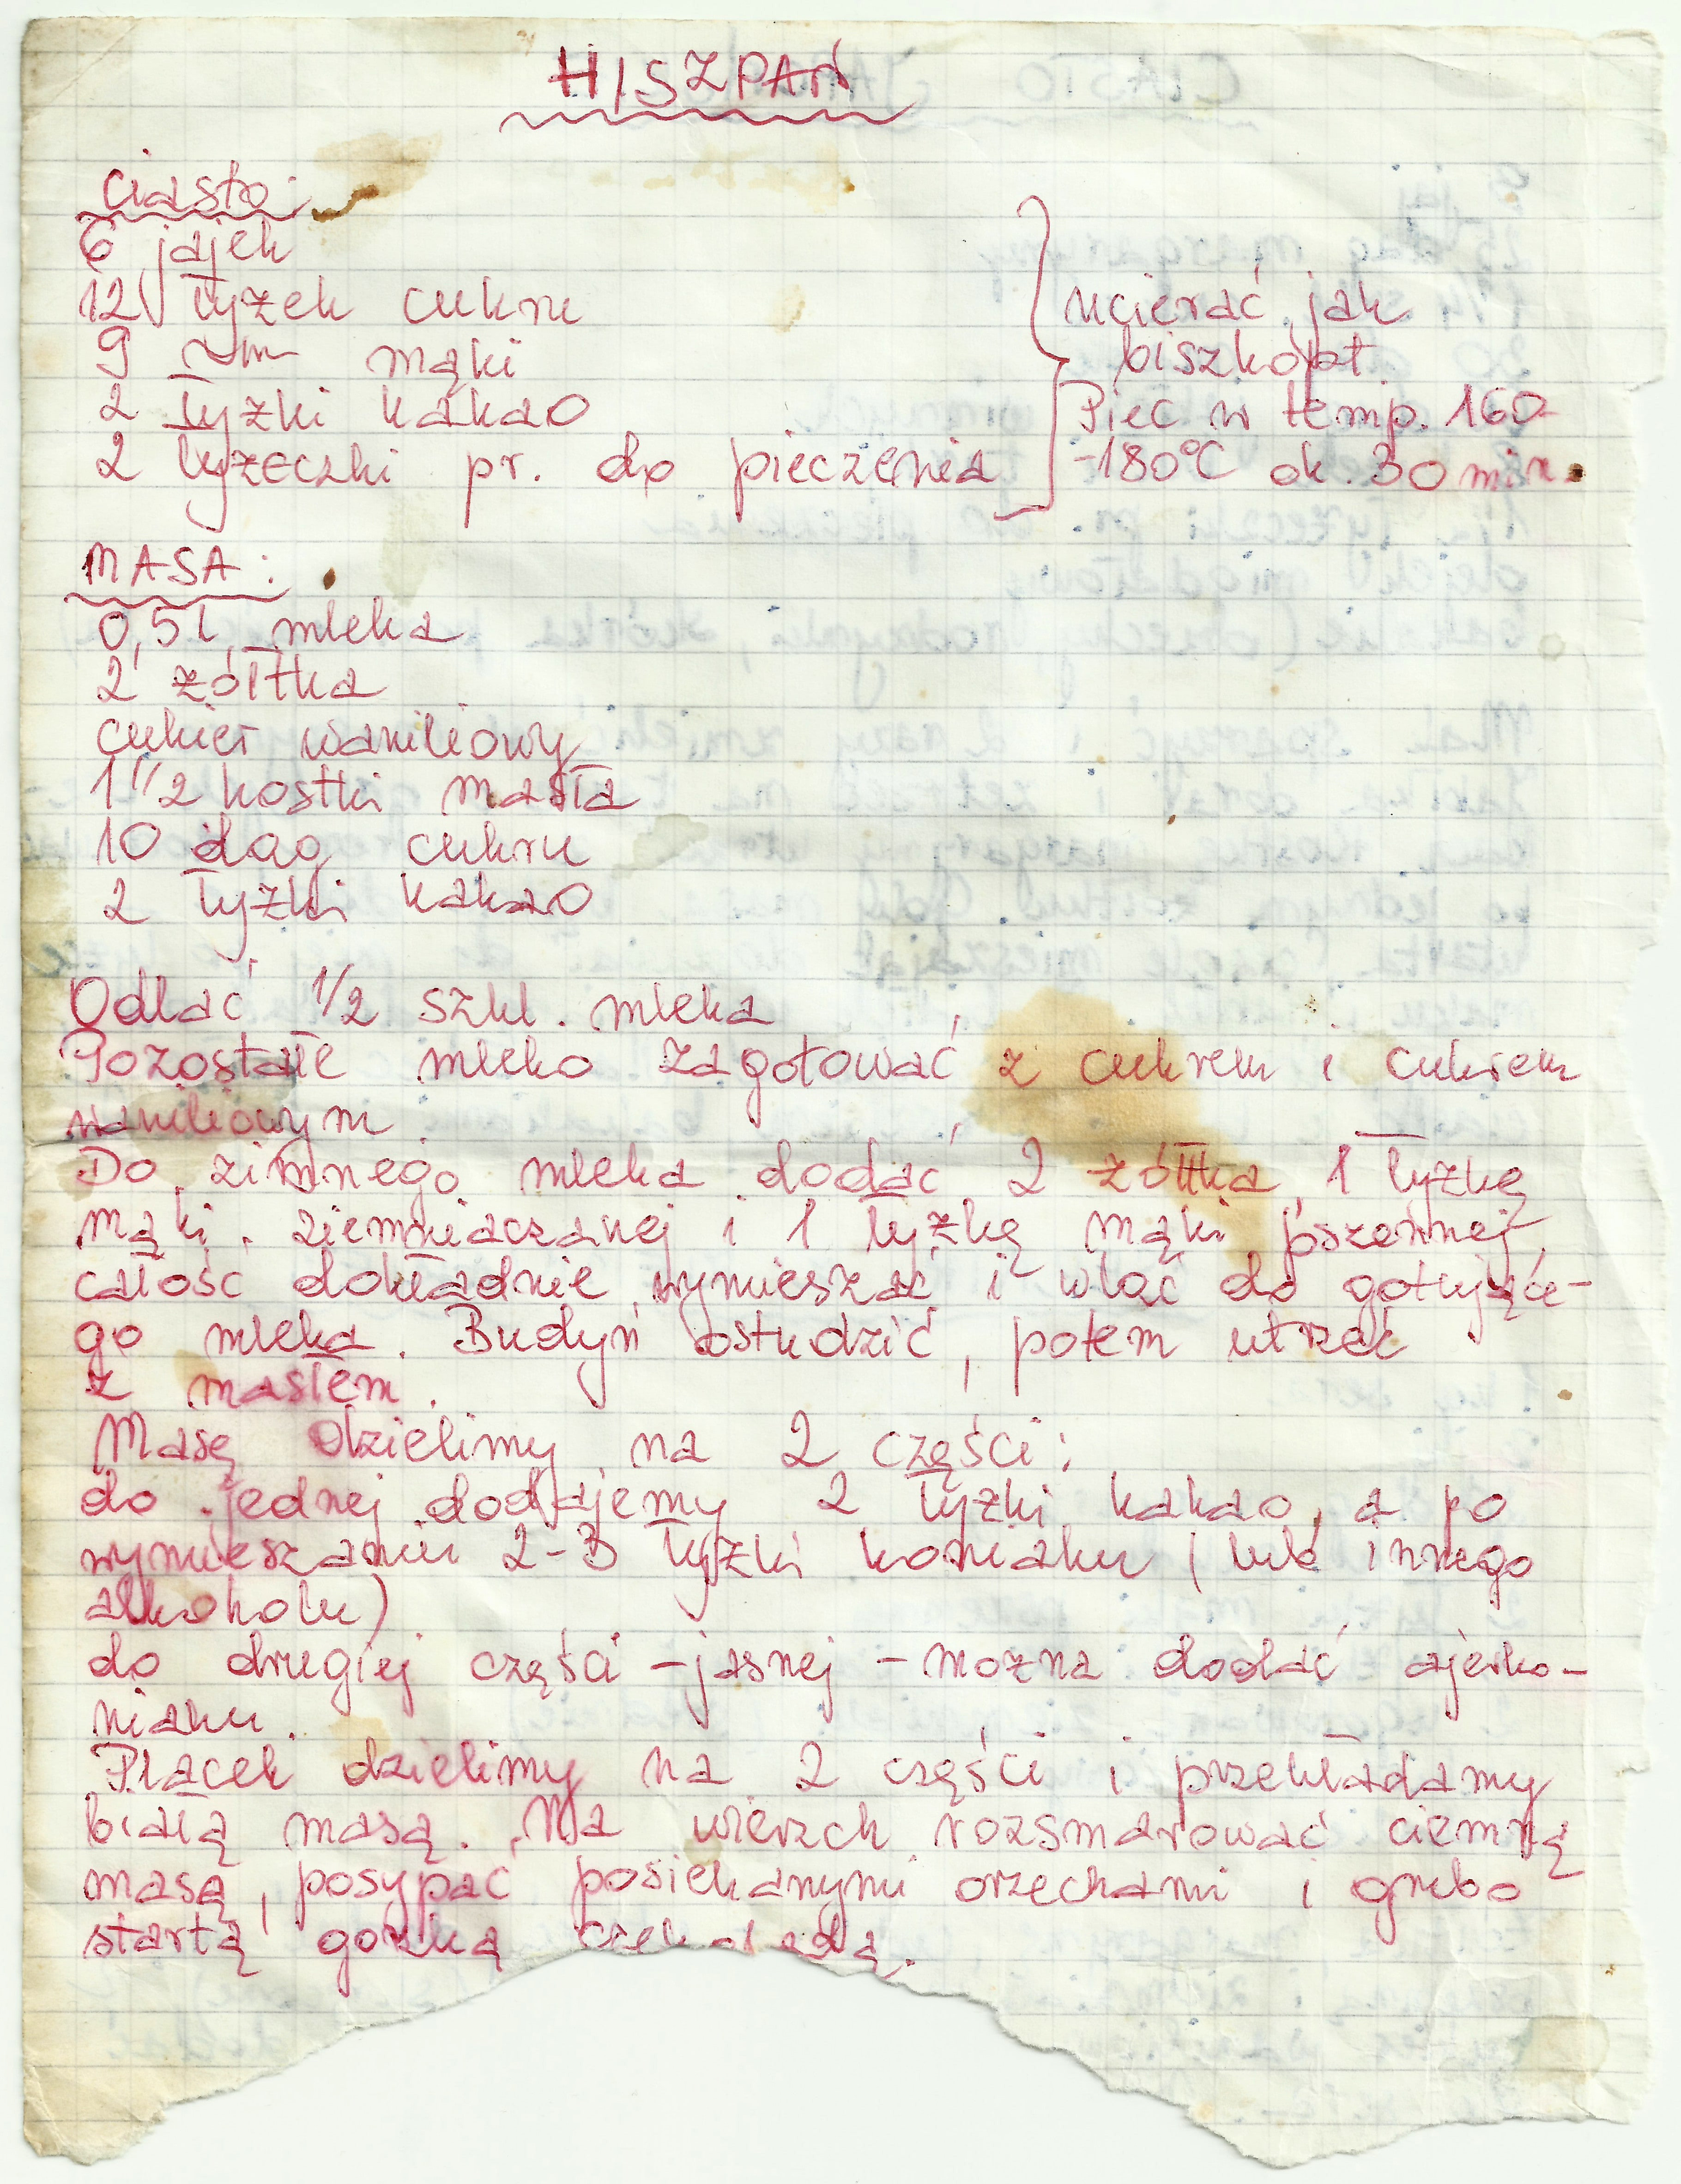 HISZPAN
ciasto:
6 jajek
12 łyżek cukru
9 mąki
2 łyżki kakao
2 łyżeczki pr. do pieczenia
ucierać jak
biszkopt
Piec w temp. 160-
-180°C ok. 30 min.
MASA:
0,5 l mleka
2 żółtka
cukier waniliowy
1 1/2 kostki masła
10 dag cukru
2 łyżki kakao
Odlać 1/2 szkl. mleka
Pozostałe mleko zagotować z cukrem i cukrem
waniliowym.
Do zimnego mleka dodać 2 żółtka, 1 łyżkę
mąki ziemniaczanej i 1 łyżkę mąki pszennej,
całość dokładnie wymieszać i wlać do gotujące-
go mleka. Budyń ostudzić, potem utrzeć
z masłem.
Masę dzielimy na 2 części:
do jednej dodajemy 2 łyżki kakao, a po
wymieszaniu 2-3 łyżki koniaku (lub innego
alkoholu)
do drugiej części - jasnej - można dodać ajerko-
niaku.
Placek dzielimy na 2 części i przekładamy
białą masą. Na wierzch rozsmarować ciemną
masą, posypać posiekanymi orzechami i grubo
startą gorzką czekoladą.